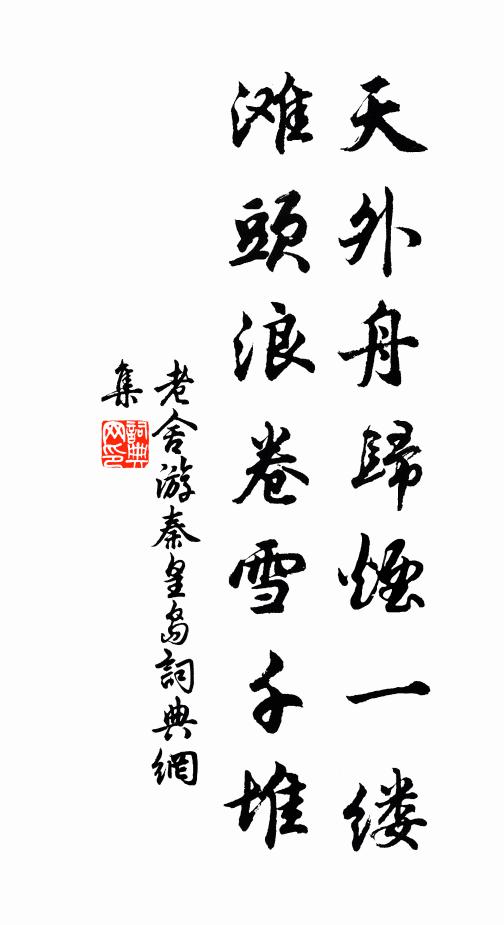 天外舟歸煙一缕
滩頭浪卷雪千堆
老舍游秦皇岛詞典網
集
詞典
网印